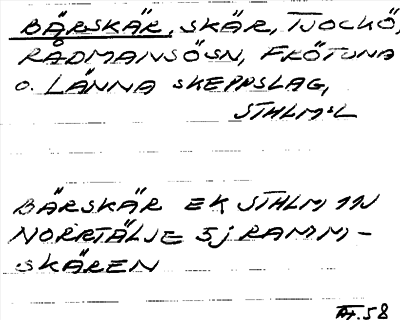 BÄRSKÄR, SKÄR, TJOCKÖ,
RÅDMANSÖSN, FRÖTUNA
O. LÄNNA SKEPPSLAG,
STHLM:SL
BÄRSKÄR EK STHLM 11N
NORRTÄLJE 5j RAMM-
SKÄREN
.58